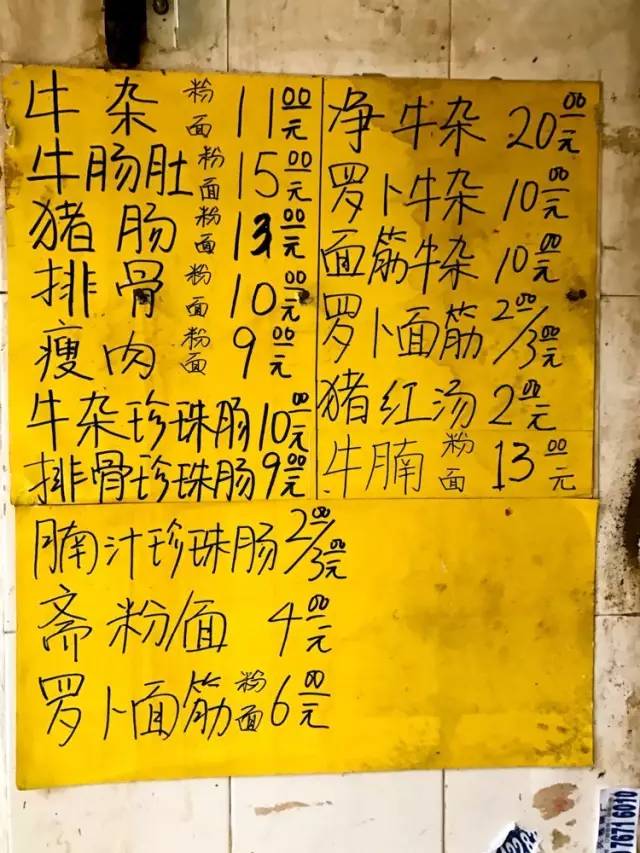 牛杂 粉面 11.00元
牛肠肚 粉面 15.00元
猪肠 粉面 13.00元
排骨 粉面 10.00元
瘦肉 粉面 9.00元
牛杂珍珠肠 10.00元
排骨珍珠肠 9.00元
净牛杂 20.00元
罗卜牛杂 10.00元
面筋牛杂 10.00元
罗卜面筋 2.00/3.00元
猪红汤 2.00元
牛腩 粉面 13.00元
腩汁珍珠肠 2.00/3.00元
斋粉面 4.00元
罗卜面筋 粉面 6.00元
7671 6010